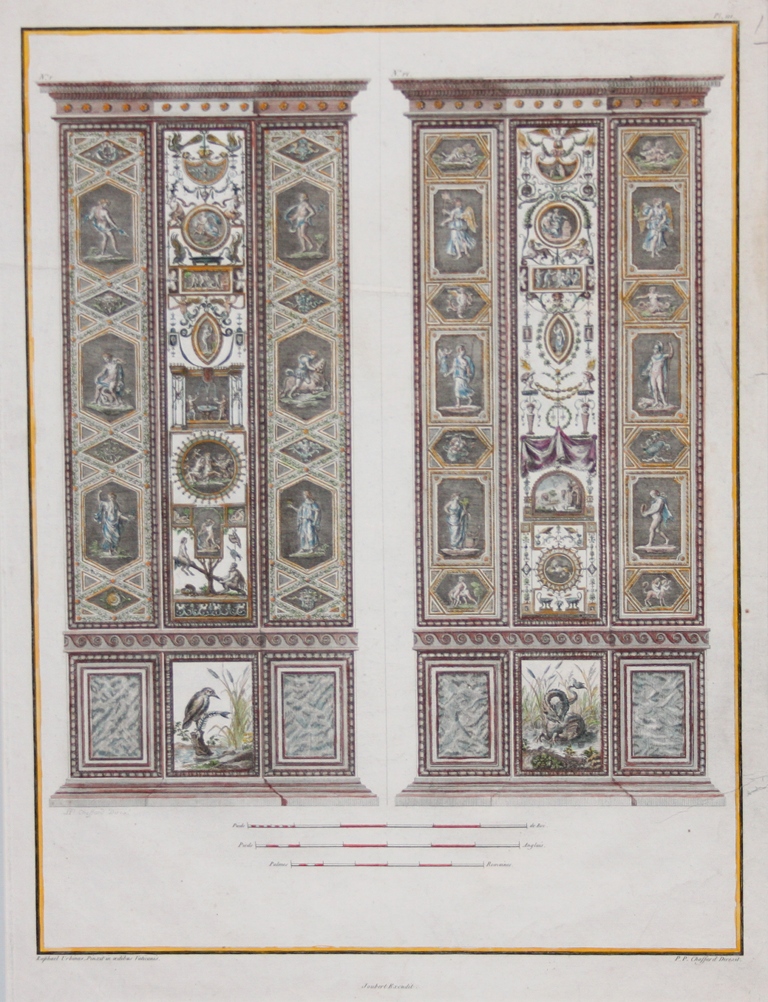 Pl.
N.º
N.º
Pieds de Roi.
Pieds Anglais.
Palmes Romains.
Raphael Urbinas Pinxit in aedibus Vaticanis.
P. P. Choffard Direxit.
Joubert Excudit